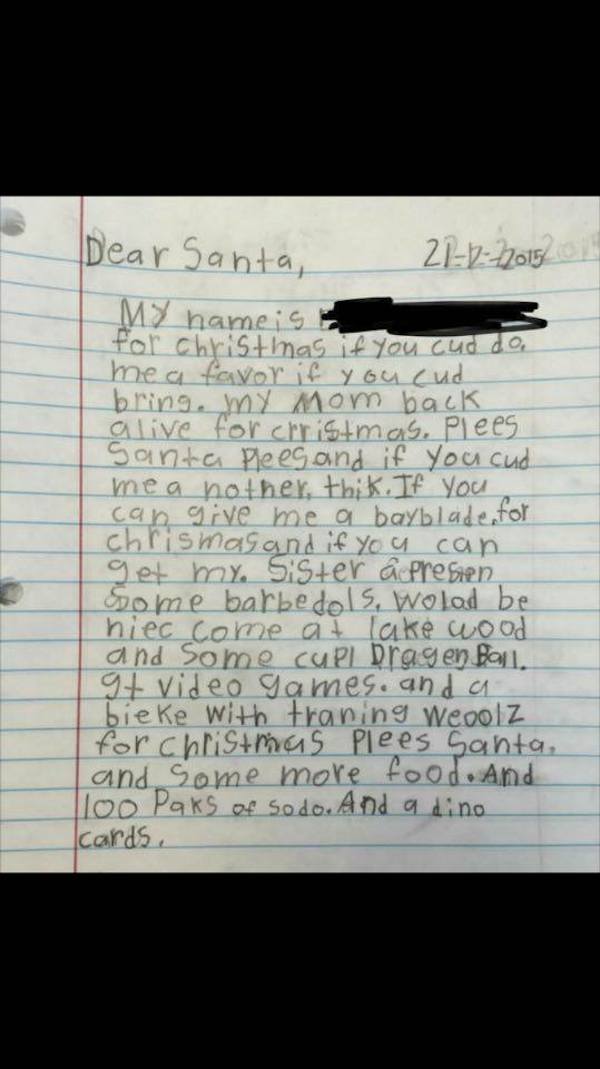 Dear Santa, 21-12-2015
My name is
for christmas if you cud do.
me a favor if you cud
bring. my Mom back
alive for crristmas. Plees
Santa Pleesand if you cud
me a nother, thik. If you
can give me a bayblade, for
chrismasand if you can
get my. Sister a presten
Some barbedols. wolad be
niec come at lake wood
and some cupl Dragen Ball.
gt video games. and a
bieke with traning weoolz
for christmas Plees Santa.
and some more food. And
100 Paks of sodo. And a dino
cards.